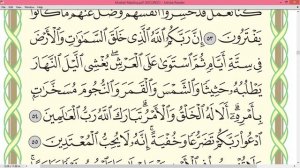 Mushaf Madina.pdf (SECURED) - Adobe Reader
كُنَّا نَعْمَلُ قَدْ خَسِرُوٓا۟ أَنفُسَهُمْ وَضَلَّ عَنْهُم مَّا كَانُوا۟
يَفْتَرُونَ ٥٣ إِنَّ رَبَّكُمُ ٱللَّهُ ٱلَّذِى خَلَقَ ٱلسَّمَٰوَٰتِ وَٱلْأَرْضَ
فِى سِتَّةِ أَيَّامٍ ثُمَّ ٱسْتَوَىٰ عَلَى ٱلْعَرْشِ يُغْشِى ٱلَّيْلَ ٱلنَّهَارَ
يَطْلُبُهُۥ حَثِيثًا وَٱلشَّمْسَ وَٱلْقَمَرَ وَٱلنُّجُومَ مُسَخَّرَٰتٍۭ
بِأَمْرِهِۦٓ أَلَا لَهُ ٱلْخَلْقُ وَٱلْأَمْرُ تَبَارَكَ ٱللَّهُ رَبُّ ٱلْعَٰلَمِينَ ٥٤
ٱدْعُوا۟ رَبَّكُمْ تَضَرُّعًا وَخُفْيَةً إِنَّهُۥ لَا يُحِبُّ ٱلْمُعْتَدِينَ ٥٥